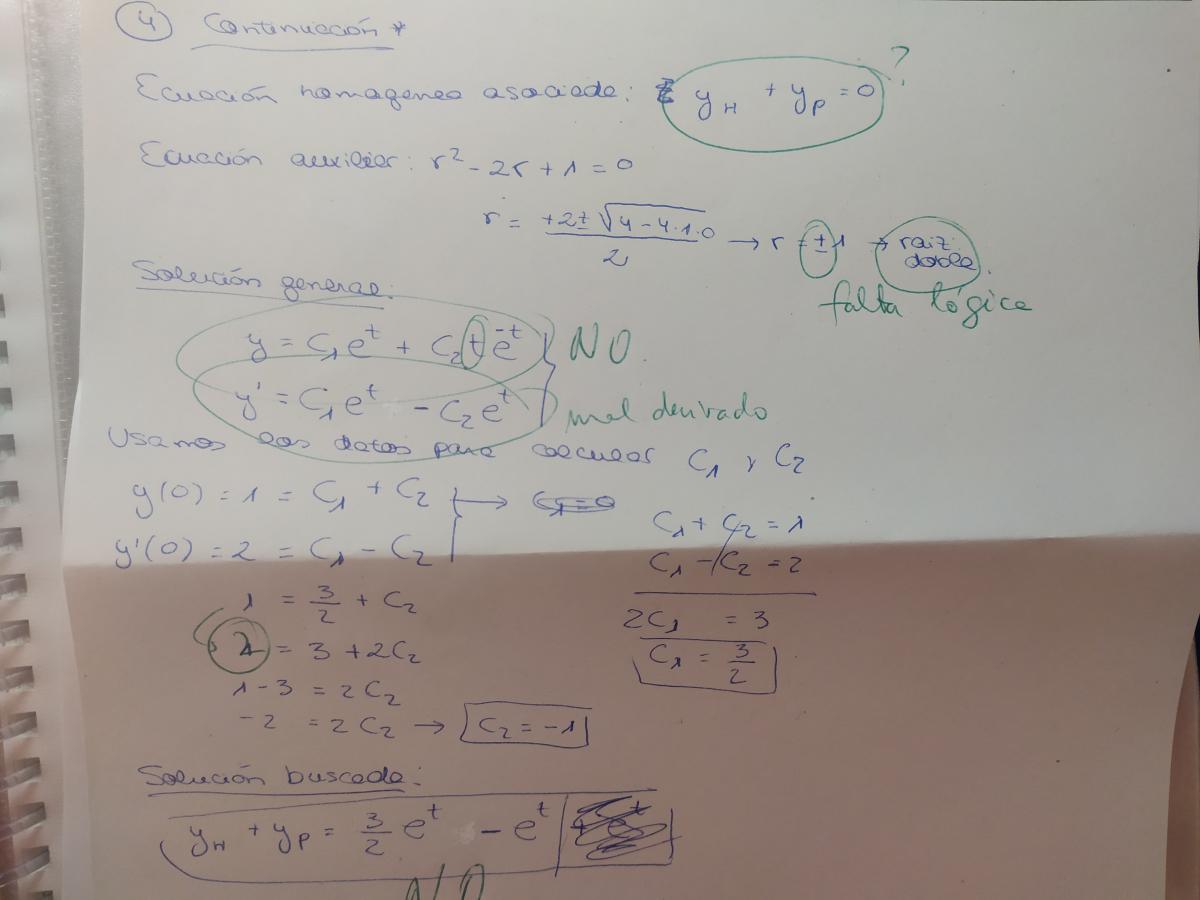 4 Continuación *
Ecuación homogenea asociada: y_H + y_P = 0 ?
Ecuación auxiliar: r² - 2r + 1 = 0
r = (+2 ± √(4 - 4·1·0)) / 2 → r = ±1 → raiz doble.
falta lógica
Solución general:
y = C₁e^t + C₂te^-t NO
y' = C₁e^t - C₂e^t mal derivado
Usamos los datos para calcular C₁ y C₂
y(0) = 1 = C₁ + C₂ → C₁=0
y'(0) = 2 = C₁ - C₂
C₁ + C₂ = 1
C₁ - C₂ = 2
2C₁ = 3
C₁ = 3/2
1 = 3/2 + C₂
2 = 3 + 2C₂
1 - 3 = 2C₂
-2 = 2C₂ → C₂ = -1
Solución buscada:
y_H + y_P = 3/2 e^t - e^t
NO